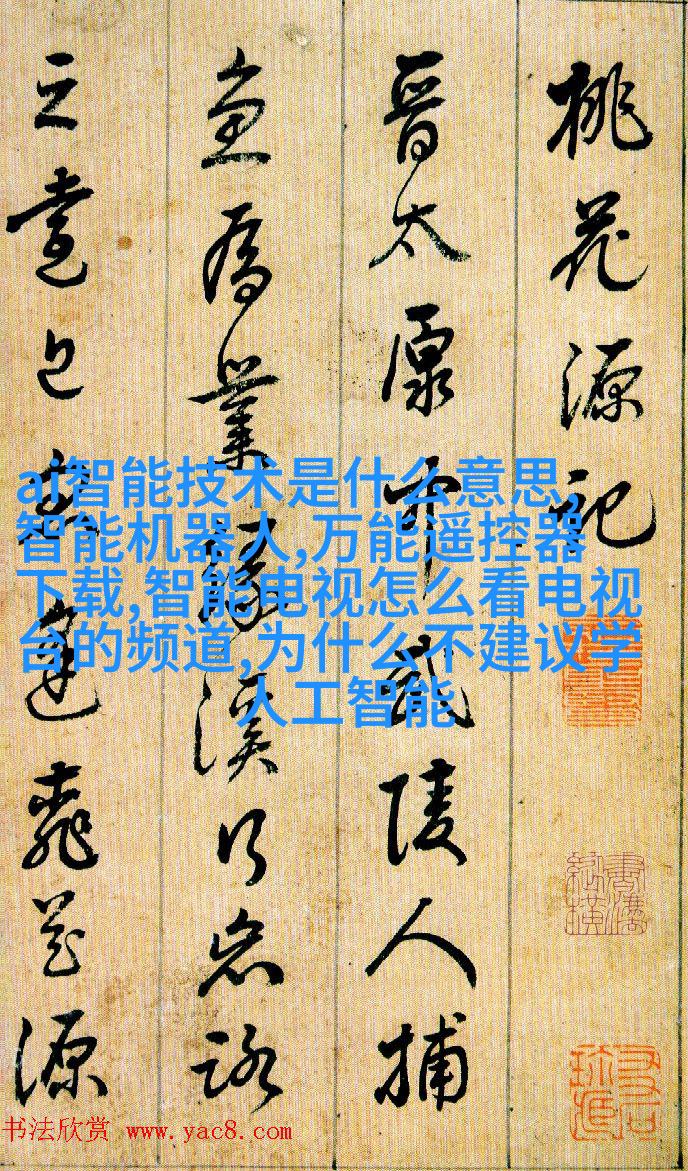 桃花源記
晉太原中武陵人捕
魚為業緣溪行忘路
之
花源
ai智能技术是什么意思,
智能机器人,万能遥控器
下载,智能电视怎么看电视
台的频道,为什么不建议学
人工智能
书法欣赏 www.yac8.com